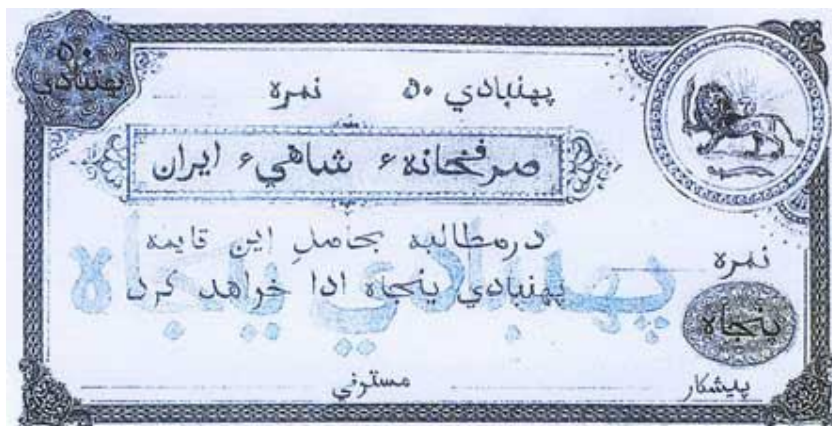 ۵۰
پهنبادي
پهنبادي ۵۰ نمره
صرفخانهء شاهيء ايران
درمطالبه بحامل اين قايمه
پهنبادي پنجاه ادا خواهد كرد
پهنبادي پنجاه
نمره
پنجاه
پيشكار
مستوفي